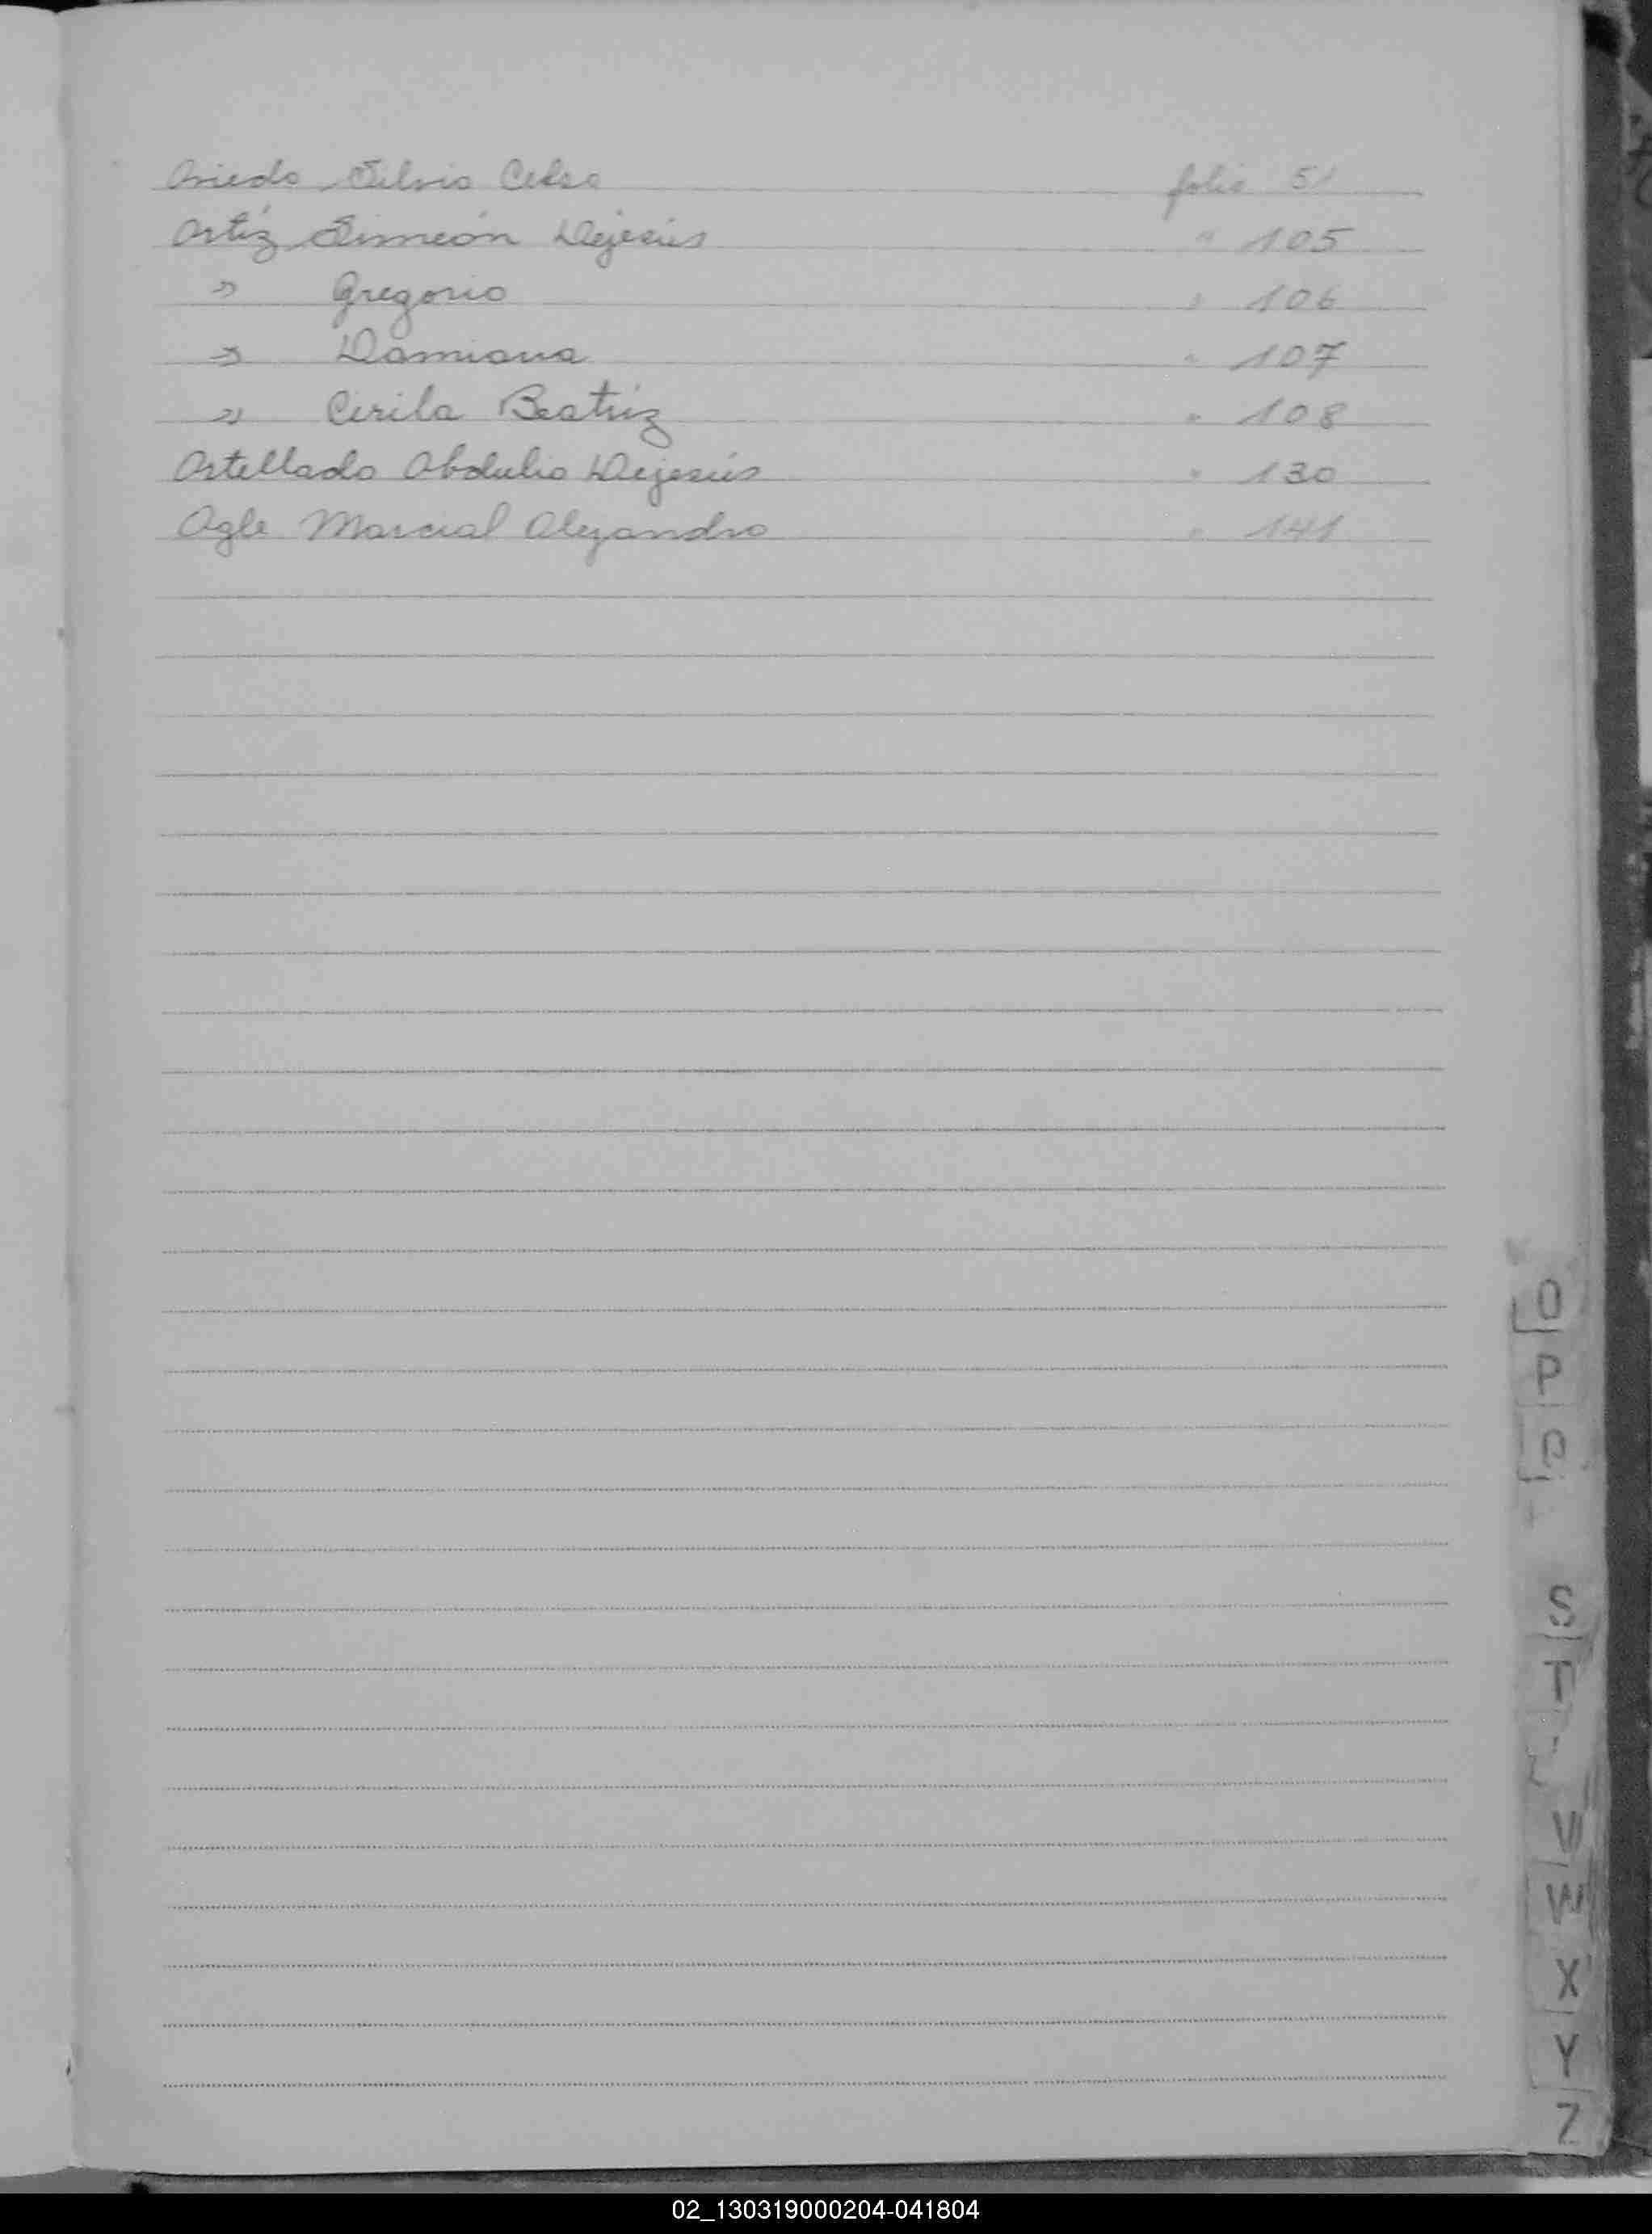 Oviedo Silvio Celso folio 51
Ortíz Simeón Dejesús " 105
" Gregorio " 106
" Damiana " 107
" Cirila Beatríz " 108
Ortellado Obdulio Dejesús " 130
Ogle Marcial Alejandro " 141
O
P
Q
S
T
V
W
X
Y
Z
02_130319000204-041804